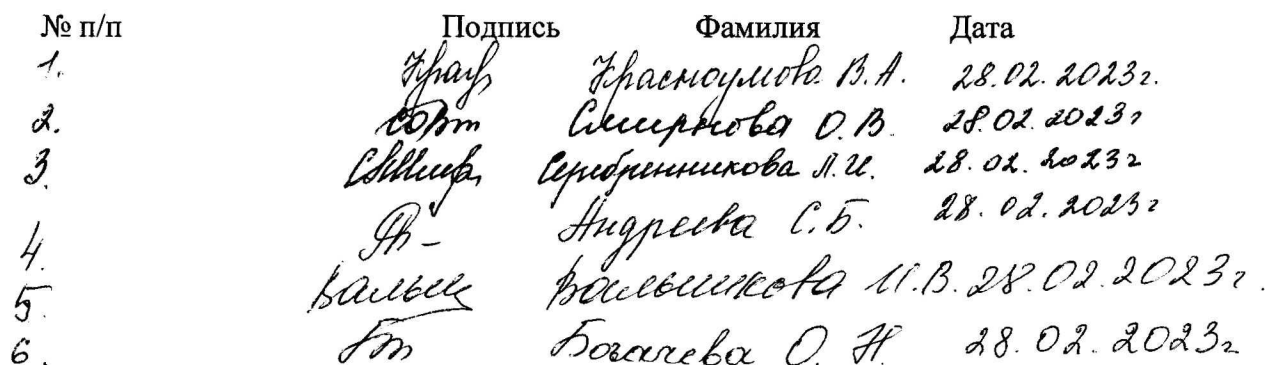 № п/п Подпись Фамилия Дата
1. Красноумова В.А. 28.02.2023г.
2. Смирнова О.В. 28.02.2023г
3. Серебренникова Л.И. 28.02.2023г
4. Андреева С.Б. 28.02.2023г
5. И.В. 28.02.2023г.
6. Богачева О.Н. 28.02.2023г